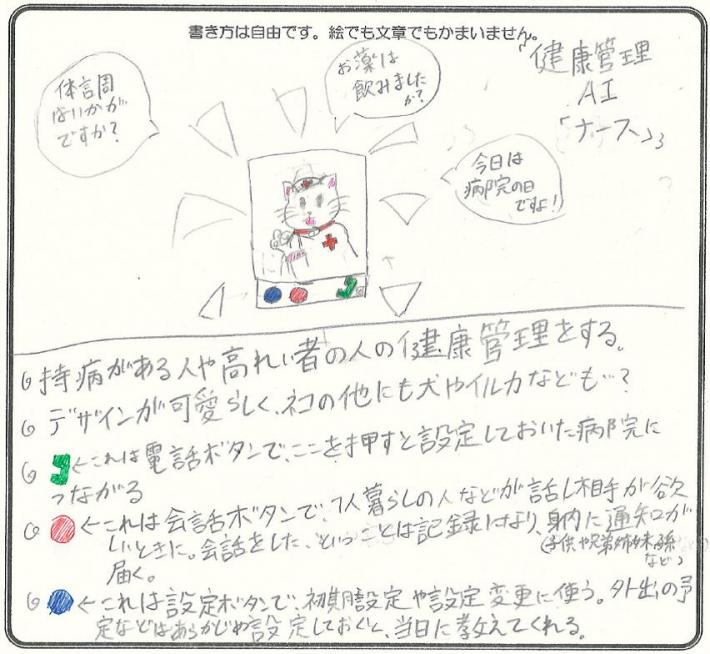 書き方は自由です。絵でも文章でもかまいません。
『健康管理
AI
「ナース」』
体調
はいかが
ですか?
お薬は
飲みました
か?
今日は
病院の日
ですよ!
持病がある人や高れい者の人の健康管理をする。
デザインが可愛らしく、ネコの他にも犬やイルカなども…?
←これは電話ボタンで、ここを押すと設定しておいた病院に
つながる
←これは会話ボタンで、1人暮らしの人などが話し相手が欲
しいときに。会話をした、ということは記録になり、身内に通知が
(子供や兄弟姉妹、孫
など)
届く。
←これは設定ボタンで、初期設定や設定変更に使う。外出の予
定などはあらかじめ設定しておくと、当日に教えてくれる。